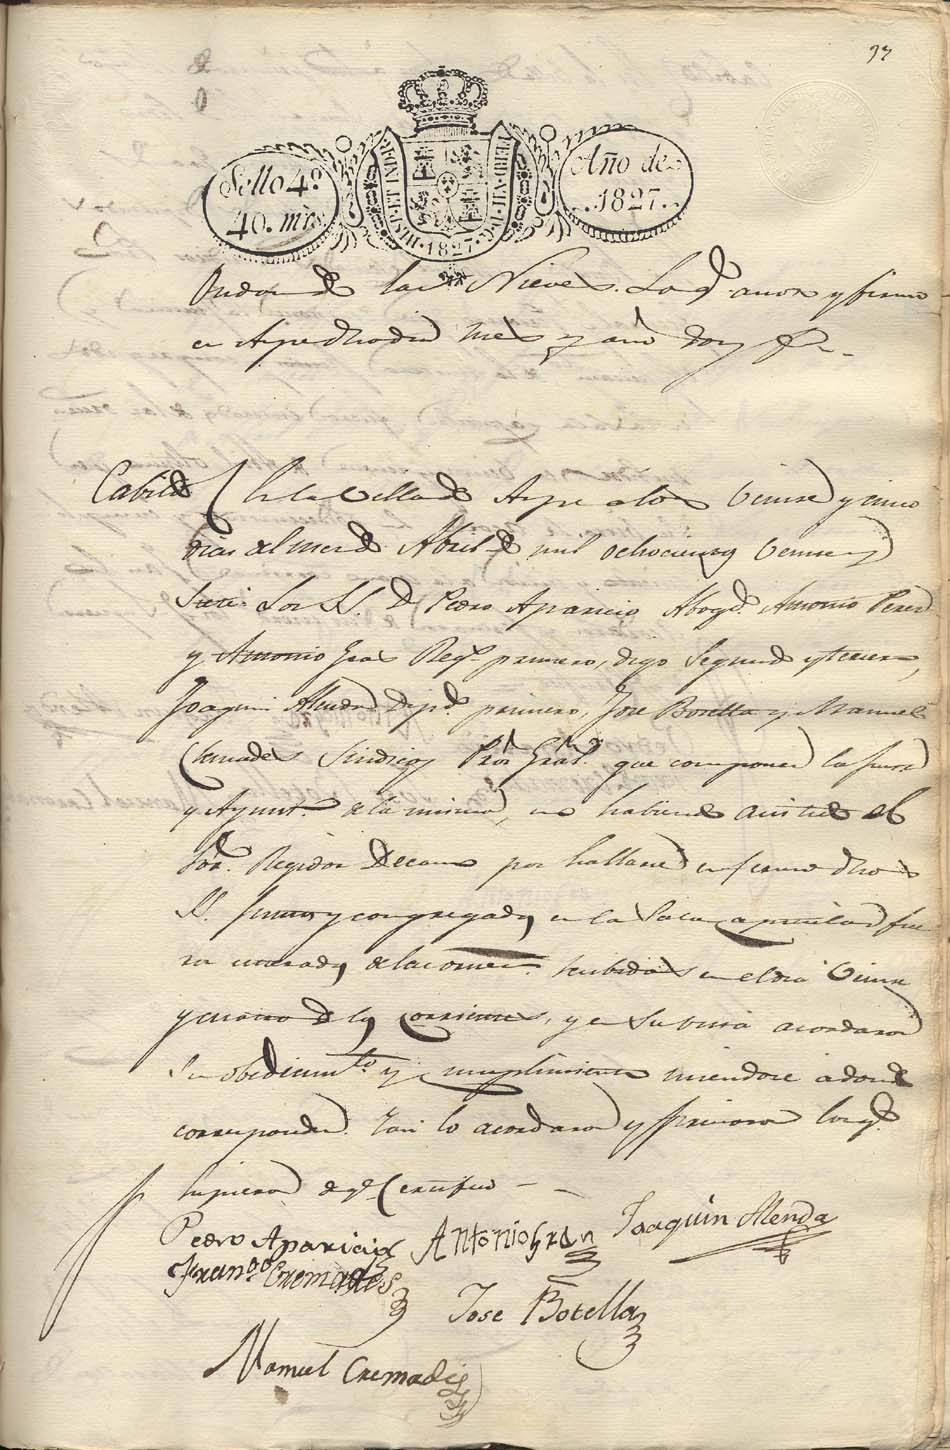 37
Sello 4º
40. mrs.
HISP. ET IND. R. FERD. VII. D. G. 1827
Año de
1827.
de las Nieves. Lo q.e anoto y firmo
en Aspe dho dia mes y año doy fe
Cabildo En la Villa de Aspe a los Veinte y cinco
dias del mes de Abril de mil ochocientos Veinte y
Siete: Los SS. D. Pedro Aparicio Abog.do Antonio Perez
y Antonio Gras Reg.s primero, digo Segundo y tercero,
Joaquin Alenda Dip.do primero, Jose Botella y Manuel
Cremades Sindico Pror Gral. que componen la Junta
y Ayunt.to de la misma, no habiendo asistido el
Sor. Regidor Decano por hallarse enfermo dhos
SS. juntos y congregados en la Sala capitular fue
ron enterados de las ordenes recibidas en el dia Veinte
y cuatro de los corrientes, y en su vista acordaron
Su obedecim.to y cumplimiento uniendose a donde
corresponda. Asi lo acordaron y firmaron los q.e
supieron de q.e Certifico
Pedro Aparicio Antonio Gras Joaquin Alenda
Fran.co Cremades
Jose Botella
Manuel Cremades